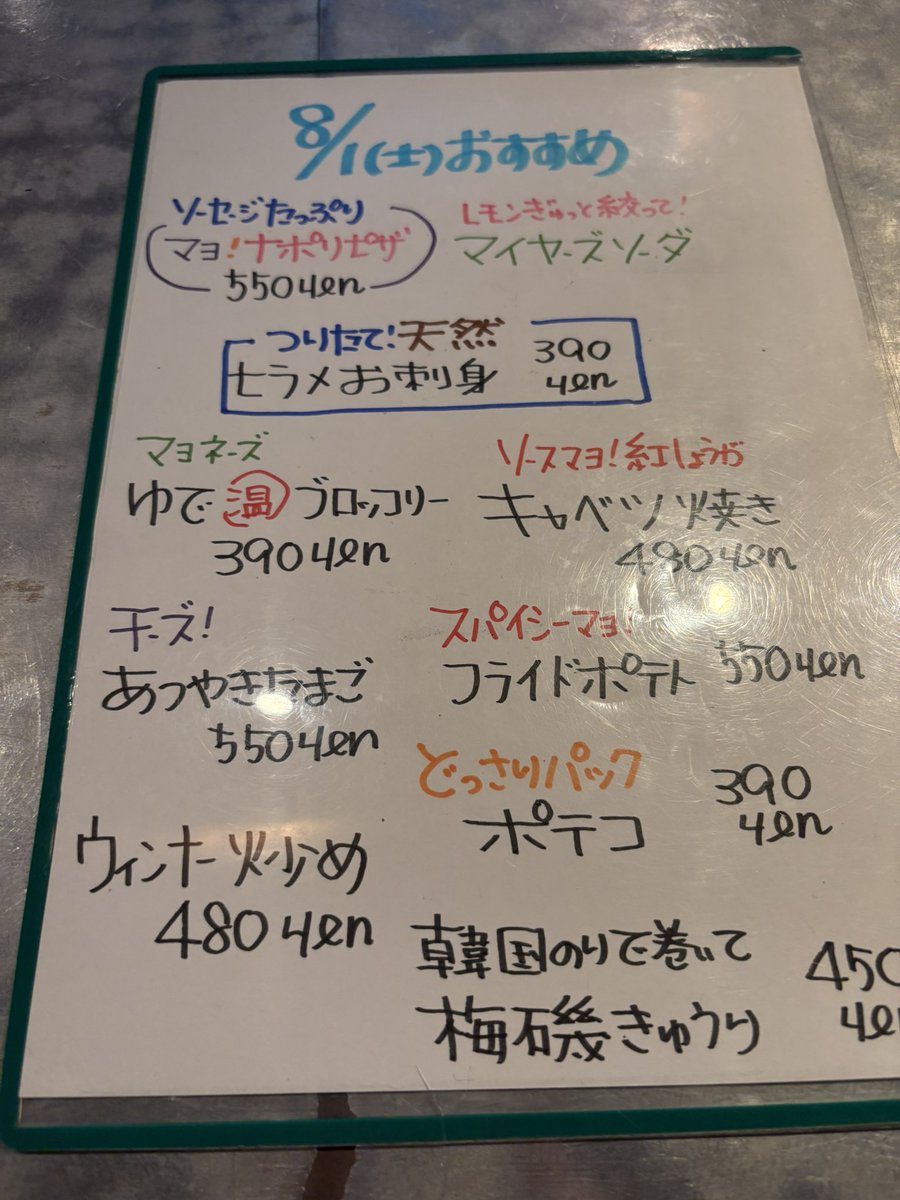 8/1(土)おすすめ
ソーセージたっぷり
マヨ!ナポリピザ
550yen
レモンぎゅっと絞って!
マイヤーズソーダ
つりたて!天然
ヒラメお刺身
390
yen
マヨネーズ
ゆで温ブロッコリー
390yen
ソースマヨ!紅しょうが
キャベツ焼き
480yen
チーズ!
あつやきたまご
550yen
スパイシーマヨ!
フライドポテト 550yen
どっさりパック
ポテコ
390
yen
ウィンナー炒め
480yen
韓国のりで巻いて
梅磯きゅうり
450